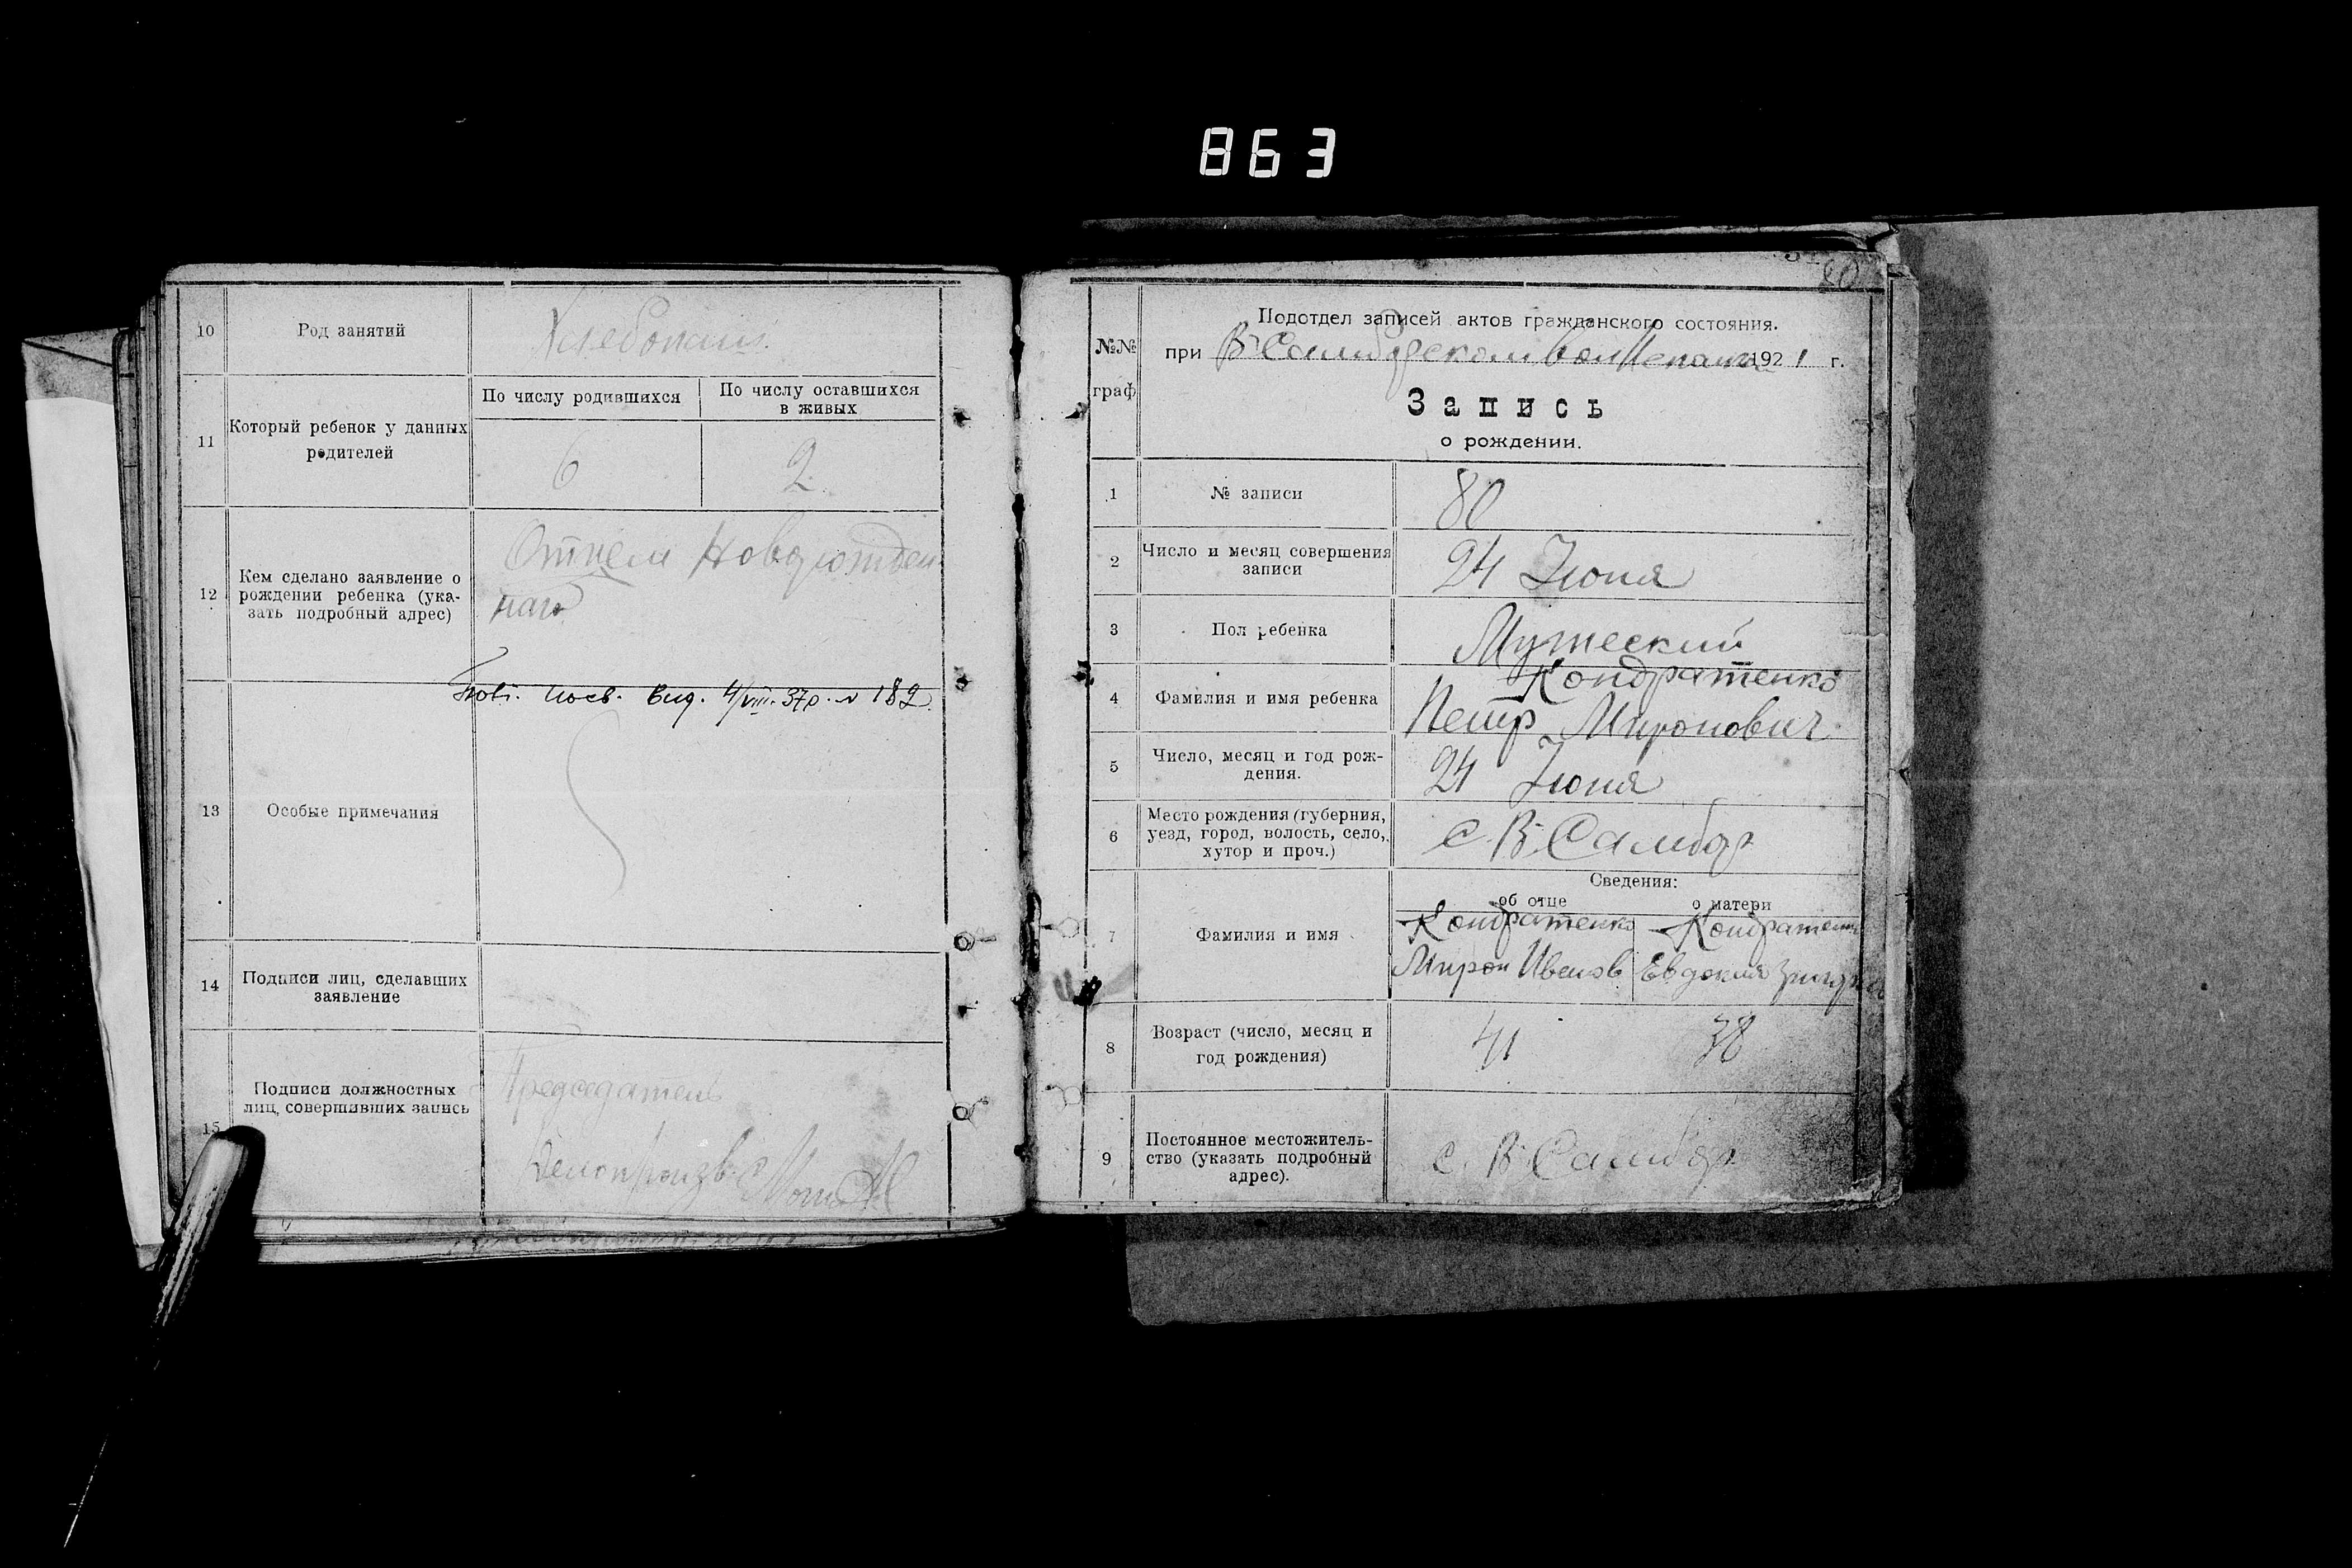 863
10
Род занятий
Хлебопаш.
11
Который ребенок у данных
родителей
По числу родившихся
По числу оставшихся
в живых
6
2
12
Кем сделано заявление о
рождении ребенка (ука-
зать подробный адрес)
Отцем Новорожден
наго
13
Особые примечания
вид. 4/VIII. 37р. № 182
14
Подписи лиц, сделавших
заявление
15
Подписи должностных
лиц, совершивших запись
Председатель
Делопроизв.
80
№№
граф
Подотдел записей актов гражданского состояния.
при В-Самборском Вол 1921 г.
Запись
о рождении.
1
№ записи
80
2
Число и месяц совершения
записи
24 Июня
3
Пол ребенка
Мужеский
4
Фамилия и имя ребенка
Кондратенко
Петр Миронович
5
Число, месяц и год рож-
дения.
24 Июня
6
Место рождения (губерния,
уезд, город, волость, село,
хутор и проч.)
с. В-Самбор
7
Фамилия и имя
Сведения:
об отце
о матери
Кондратенко
Мирон Иванов
Кондратенко
Евдокия
8
Возраст (число, месяц и
год рождения)
41
38
9
Постоянное местожитель-
ство (указать подробный
адрес).
с. В-Самбор